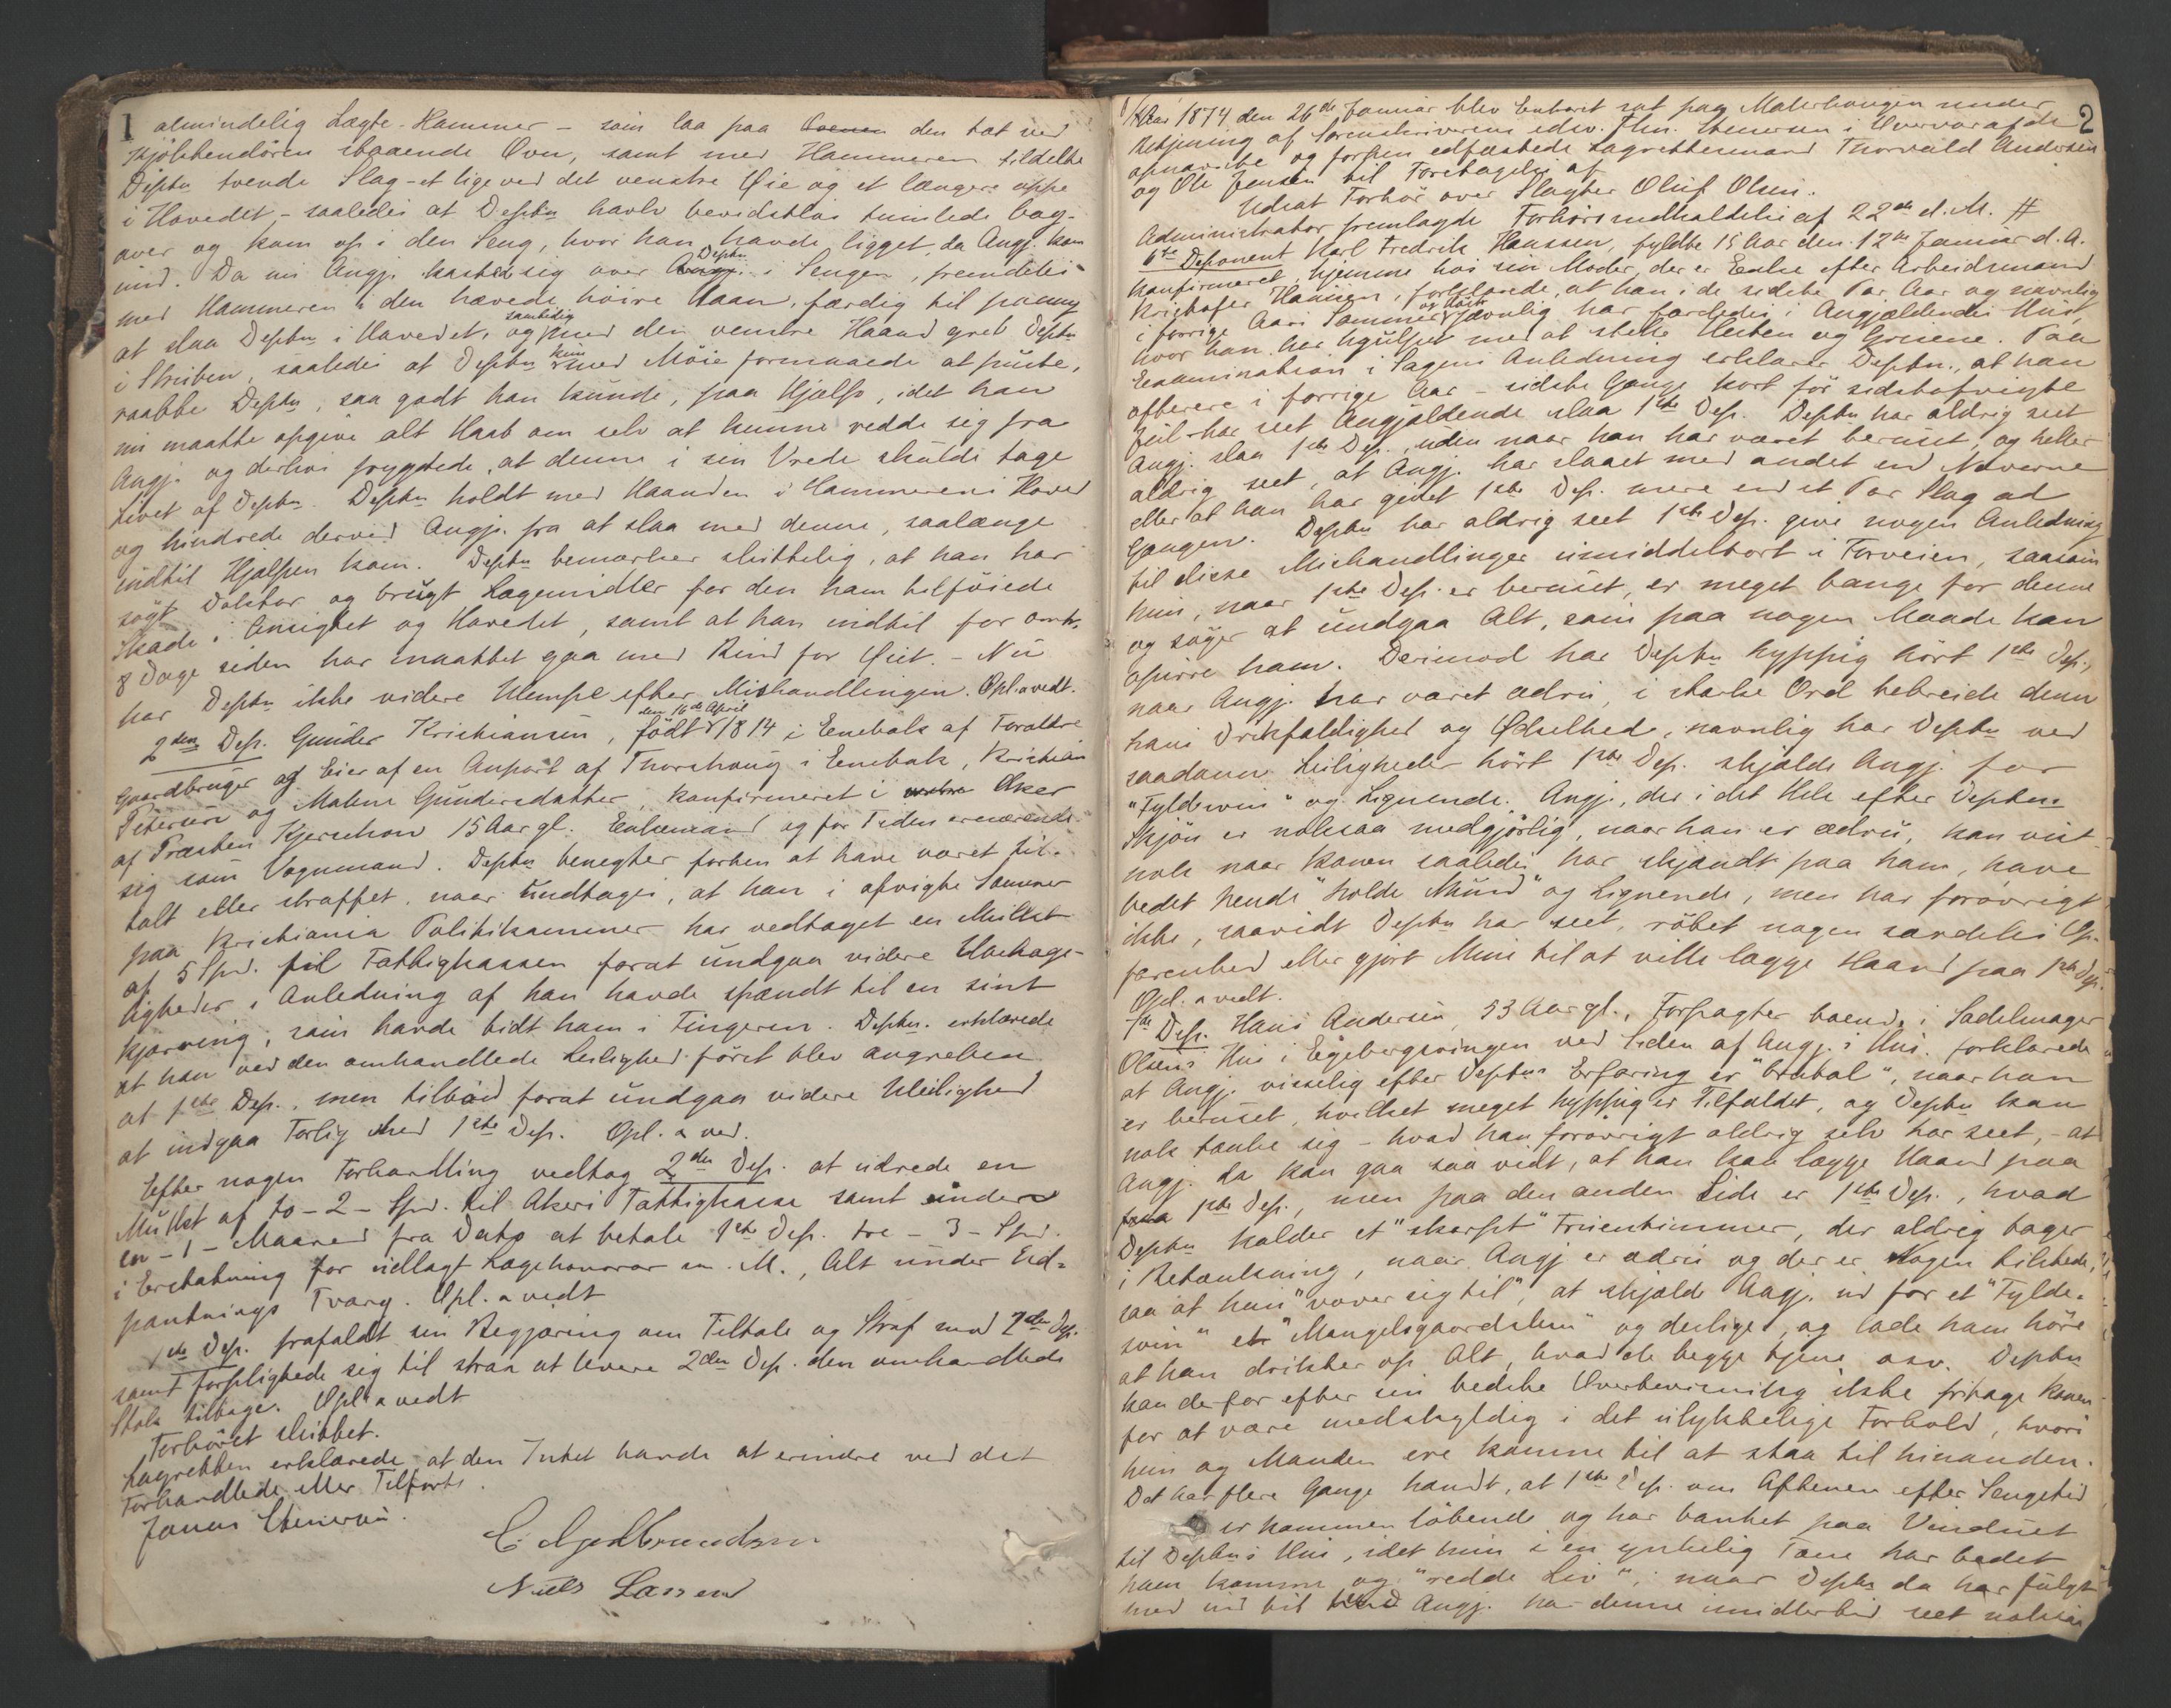 1
almindelig Lægte-Hammer – som laa paa Ovenen den tæt ved
Kjökkendören staaende Ovn, samt med Hammeren tildelte
Deptn tvende Slag – et lige ved det venstre Øie og et længere oppe
i Hovedet, – saaledes at Deptn halv bevidstlös tumlede bag-
over og kom op i den Seng, hvor han havde ligget, da Angj. kom
ind. Da nu Angj. kastede sig over Angj. Deptn i Sengen, fremdeles
med Hammeren i den hævede höire Haand, færdig til paany
at slaa Deptn i Hovedet, og samtidig med den venstre Haand greb Deptn
i Struben, saaledes at Deptn kun med Möie formaaede at puste,
raabte Deptn, saa godt han kunde, paa Hjælp, idet han
nu maatte opgive alt Haab om selv at kunne redde sig fra
Angj. og derhos frygtede, at denne i sin Vrede skulde tage
Livet af Deptn. Deptn holdt med Haanden i Hammerens Hoved
og hindrede derved Angj. fra at slaa med denne, saalænge
indtil Hjælpen kom. Deptn bemærker sluttelig, at han har
sögt Doktor og brugt Lægemidler for den ham tilföiede
Skade i Ansigtet og Hovedet, samt at han indtil for omtr.
8 Dage siden har maattet gaa med Bind for Øiet. – Nu
har Deptn ikke videre Ulempe efter Mishandlingen. Opl. a vedt.
2den Dep. Gunder Kristiansen, födt den 16de April 1814 i Enebak af Forældre
Gaardbruger og Eier af en Anpart af Thorshaug i Enebak, Kristian
Petersen og Malene Gundersdatter, konfirmeret i vestre Aker
af Præsten Kjerschow 15 Aar gl. Enkemand og for Tiden ernærende
sig som Vognmand. Deptn benegter forhen at have været til-
talt eller straffet, naar undtages, at han i afvigte Sommer
paa Kristiania Politikammer har vedtaget en Mulkt
af 5 Spd. til Fattigkassen forat undgaa videre Ubehage-
ligheder i Anledning af han havde spændt til en sint
kjærring, som havde bidt ham i Fingeren. Deptn. erklærede
at han ved den omhandlede Leilighed först blev angreben
af 1ste Dep., men tilböd forat undgaa videre Uleilighed
at indgaa Forlig med 1ste Dep. Opl. a ved.
Efter nogen Forhandling vedtog 2den Dep. at udrede en
Mulkt af to – 2 – Spd. til Akers Fattigkasse samt inden
en – 1 – Maaned fra Dato at betale 1ste Dep. tre – 3 – Spd.
i Erstatning for udlagt Lægehonorar m. M., Alt under Ud-
pantnings Tvang. Opl. a vedt
1ste Dep. frafaldt sin Begjæring om Tiltale og Straf mod 2den Dep.
samt forpligtede sig til strax at levere 2den Dep. den omhandlede
Stok tilbage. Opl. a vedt
Forhöret sluttet.
Lagretten erklærede, at den Intet havde at erindre ved det
Forhandlede eller Tilförte.
Jonas Stenersen.
C. Gudbrandsen
Niels Larsen
2
Aar 1874 den 26de Januar blev Extraret sat paa Malerhaugen under
Betjening af Sorenskriverens edsv. Fhm. Stenersen i Overvær af de
opnævnte og forhen edfæstede Lagrettemænd Thorvald Andersen
og Ole Jensen til Foretagelse af
Udsat Forhör over Slagter Oluf Olsen.
Administrator fremlagde Forhörsindkaldelse af 22de d. M. #
6te Deponent Karl Fredrik Hanssen, fyldte 15 Aar den 12te Januar d. A.
konfirmeret, hjemme hos sin Moder, der er Enke efter Arbeidsmand
Kristofer Hansen, forklarede, at han i de sidste Par Aar og navnlig
i forrige Aars Sommer og Höst jævnlig har færdedes i Angjældendes Hus,
hvor han har hjulpet med at stelle Hesten og Grisene. Paa
Examination i Sagens Anledning erklærer Deptn., at han
oftere i forrige Aar – sidste Gange kort för sidstafvigte
Jul – har seet Angjældende slaa 1ste Dep. Deptn har aldrig seet
Angj. slaa 1ste Dep., uden naar han har været beruset, og heller
aldrig seet, at Angj. har slaaet med andet end Næverne
eller at han har givet 1ste Dep. mere end et Par Slag ad
Gangen. Deptn har aldrig seet 1ste Dep. give nogen Anledning
til disse Mishandlinger umiddelbart i Forveien, saasom
hun, naar 1ste Dep. er beruset, er meget bange for denne
og söger at undgaa Alt, som paa nogen Maade kan
opirre ham. Derimod har Deptn hyppig hört 1ste Dep.,
naar Angj. har været ædru, i stærke Ord bebreide denn
hans Drikfældighed og Ødselhed, navnlig har Deptn ved
saadanne Leiligheder hört 1ste Dep. skjælde Angj. for
"Fyldesvin" og Lignende. Angj., der i det Hele efter Deptns
Skjön er noksaa medgjörlig, naar han er ædru, kan vist-
nok naar Konen saaledes har skjændt paa ham, have
bedt hende "holde Mund" og Lignende, men har forövrigt
ikke, saavidt Deptn har seet, röbet nogen særdeles Op-
farenhed eller gjort Mine til at ville lægge Haand paa 1ste Dep.
Opl. a vedt.
7de Dep. Hans Andersen, 53 Aar gl., Forpagter boende i Sadelmager
Olsens Hus i Egebergsvingen ved Siden af Angj.s Hus. forklarede
at Angj. visselig efter Deptns Erfaring er "brutal", naar han
er beruset, hvilket meget hyppig er Tilfældet, og Deptn kan
nok tænke sig – hvad han forövrigt aldrig selv har seet, – at
Angj. da kan gaa saa vidt, at han kan lægge Haand paa
paa 1ste Dep., men paa den anden Side er 1ste Dep., hvad
Deptn kalder et "skarpt" Fruentimmer, der aldrig tager
i Betænkning, naar Angj er ædru og der er Nogen tilstede,
saa at hun "vover sig til", at skjælde Angj. ud for et "Fylde-
svin" et "Mangelsgaardslem" og deslige, og lade ham höre
at han drikker op Alt, hvad de begge tjene osv. Deptn
kan derfor efter sin bedste Overbevisning ikke fritage Konen
for at være medskyldig i det ulykkelige Forhold, hvori
hun og Manden ere komne til at staa til hinanden.
Det har flere Gange hændt, at 1ste Dep. om Aftenen efter Sengetid
er kommen löbende og har banket paa Vinduet
til Deptns Hus, idet hun i en ynkelig Tone har bedet
ham komme og "redde Liv"; naar Deptn da har fulgt
med ind til Angj. har denne imidlertid seet noksaa